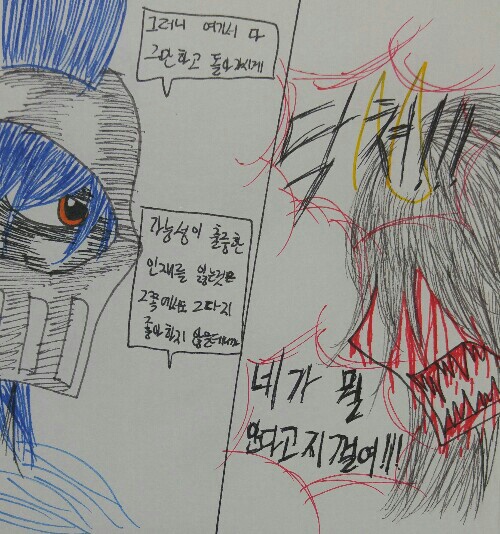 그러니 여기서 다
그만 하고 돌아가시게
가능성이 출중한
인재를 잃는것은
그쪽에서도 그다지
좋아 하지 않을테니까
닥쳐!!!
네가 뭘
안다고 지걸여!!!